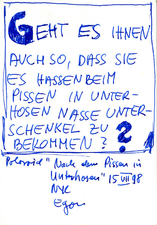 GEHT ES IHNEN
AUCH SO, DASS SIE
ES HASSEN BEIM
PISSEN IN UNTER-
HOSEN NASSE UNTER-
SCHENKEL ZU
BEKOMMEN ?
Polaroid "Nach dem Pissen in
Unterhosen" 15 VIII 98
NYC
Egon